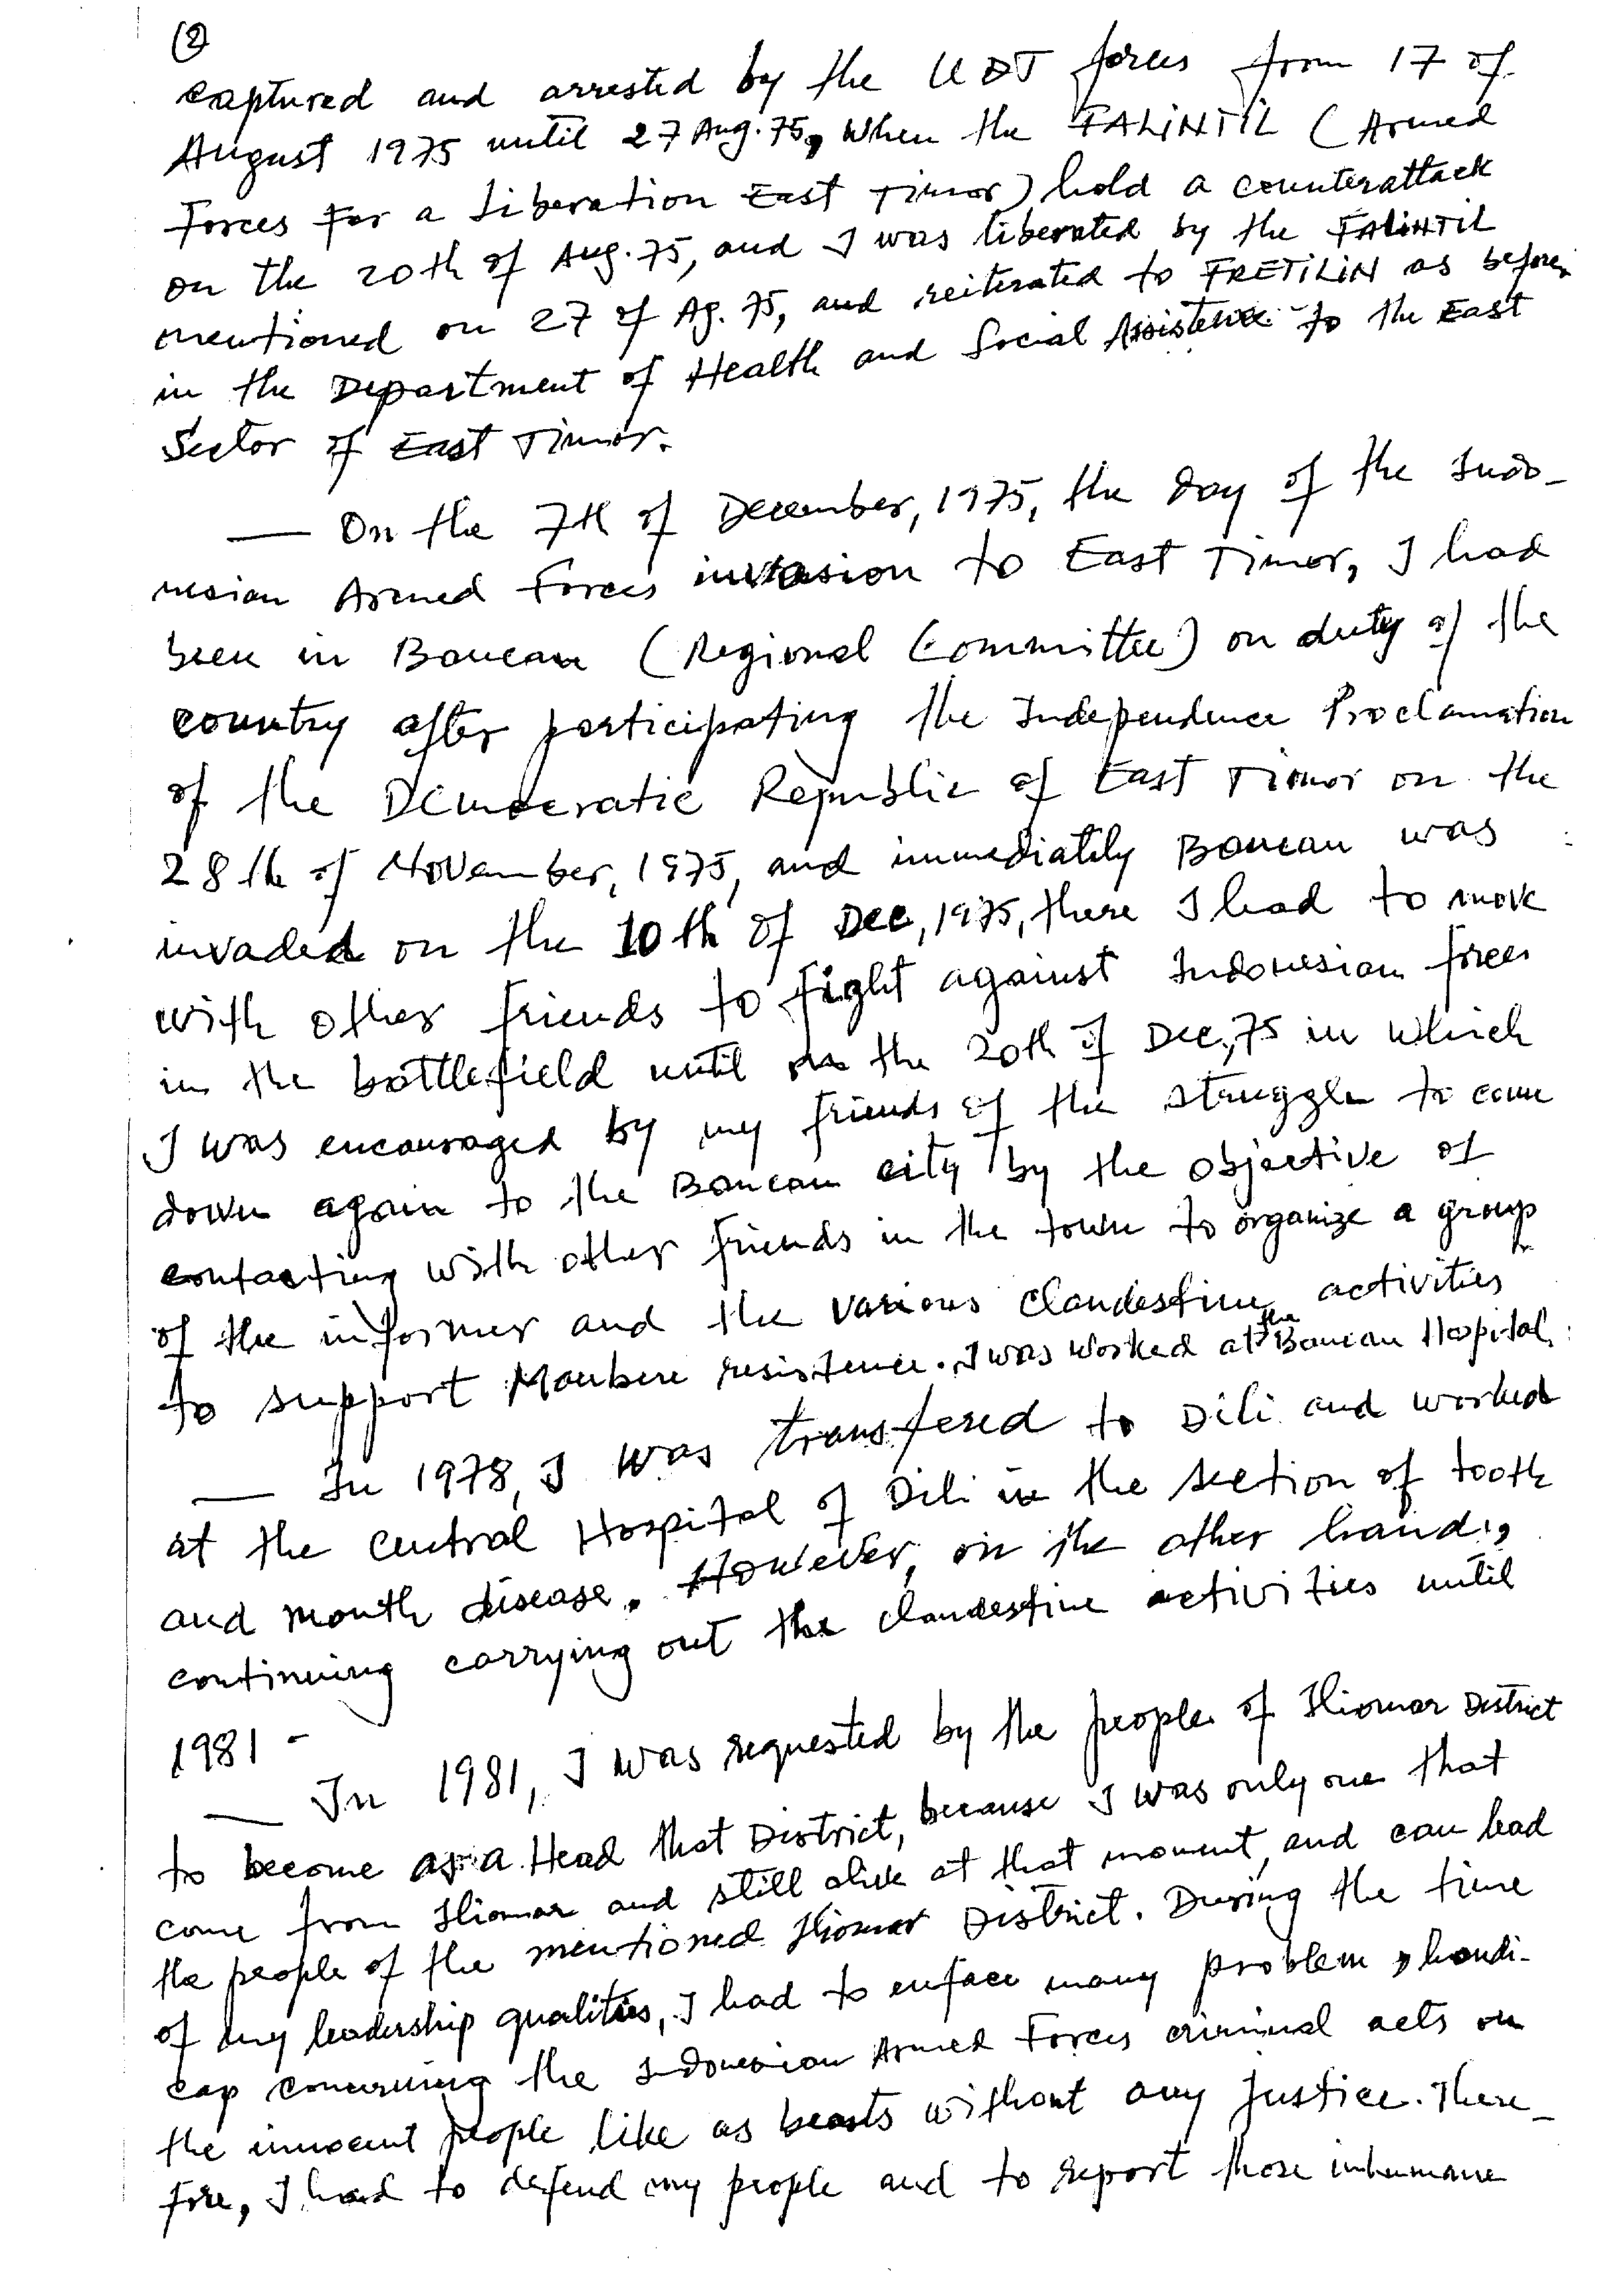 (2)
captured and arrested by the UDT forces from 17 of
August 1975 until 27 Aug. 75, when the FALINTIL (Armed
Forces For a Liberation East Timor) hold a counterattack
on the 20th of Aug. 75, and I was liberated by the FALINTIL
mentioned on 27 of Ag. 75, and reiterated to FRETILIN as before,
in the Department of Health and Social Assistence to the East
Sector of East Timor.
— On the 7th of December, 1975, the day of the Indo-
nesian Armed Forces invasion to East Timor, I had
been in Baucau (Regional Committee) on duty of the
country after participating the Independence Proclamation
of the Democratic Republic of East Timor on the
28th of November, 1975, and immediatily Baucau was
invaded on the 10th of Dec, 1975, there I had to move
with other friends to fight against Indonesian forces
in the battlefield until on the 20th of Dec, 75 in which
I was encouraged by my friends of the struggle to come
down again to the Baucau city by the objective of
contacting with other friends in the town to organize a group
of the informer and the various clandestine activities
to support Maubere resistence. I was worked at the Baucau Hospital.
— In 1978, I was transfered to Dili and worked
at the Central Hospital of Dili in the section of tooth
and mouth disease. However, on the other hand,
continuing carrying out the clandestine activities until
1981 -
— In 1981, I was requested by the people of Iliomar District
to become as a Head that District, because I was only one that
come from Iliomar and still alive at that moment, and can lead
the people of the mentioned Iliomar District. During the time
of my leadership qualities, I had to enface many problem, handi-
cap concerning the Indonesian Armed Forces criminal acts on
the innocent people like as beasts without any justice. There-
fore, I had to defend my people and to report those inhumane